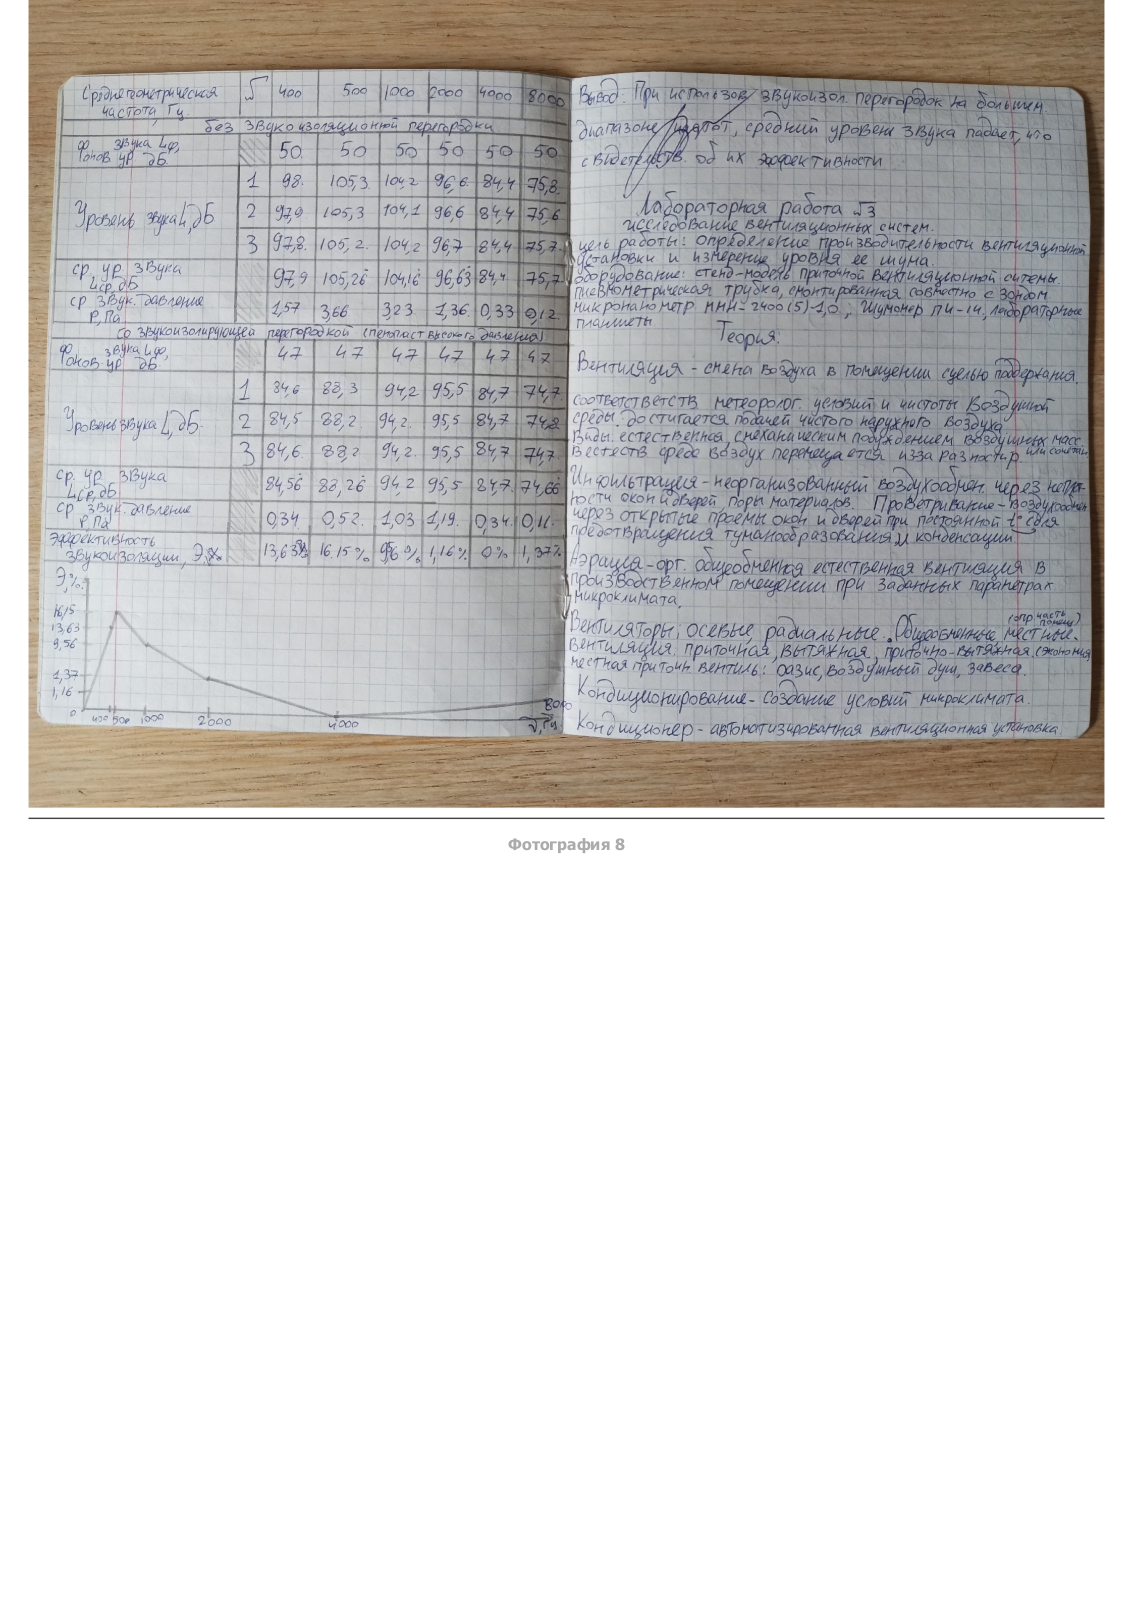 Среднегеометрическая частота, Гц. √ 400 500 1000 2000 4000 8000
без звукоизоляционной перегородки
Фонов ур звука Lф, дБ 50. 50 50 50 50 50
1 98. 105,3 104,2 96,6. 84,4 75,8.
Уровень звука L, дБ 2 97,9 105,3 104,1 96,6 84,4 75,6
3 97,8. 105,2. 104,2 96,7 84,4 75,7.
ср. ур. звука Lср, дБ 97,9 105,26 104,16 96,63 84,4 75,7
ср звук. давление P, Па 1,57 3,66 3,23 1,36 0,33 0,12
со звукоизолирующей перегородкой (пенопласт высокого давления)
Фонов ур звука Lф, дБ 47 47 47 47 47 47
1 84,6 88,3 94,2 95,5 84,7 74,7
Уровень звука L, дБ. 2 84,5 88,2. 94,2. 95,5 84,7 74,8
3 84,6. 88,2 94,2. 95,5 84,7 74,7
ср. ур звука Lср, дБ 84,56 88,26 94,2 95,5 84,7. 74,66
ср звук. давление P, Па 0,34 0,52. 1,03 1,19. 0,34. 0,11.
Эффективность звукоизоляции, Э,% 13,63% 16.15% 9,56% 1,16% 0% 1,37%
Э,%.
16,15
13,63
9,56
1,37
1,16
0 400 500 1000 2000 4000 8000
ν, Гц
Вывод: При использов звукоизол. перегородок на большем.
диапазоне частот, средний уровень звука падает, что
свидетельств. об их эффективности
Лабораторная работа √3
исследование вентиляционных систем.
цель работы: определение производительности вентиляционной
установки и измерение уровня ее шума.
оборудование: стенд-модель приточной вентиляционной ситемы.
пневмометрическая трубка, смонтированная совместно с зондом
микроманометр ММН-2400(5)-1,0, Шумомер ПИ-14, лабораторные
планшеты
Теория:
Вентиляция - смена воздуха в помещении сцелью поддержания.
соответств метеоролог. условий и чистоты воздушной
среды. достигается подачей чистого наружного воздуха
Виды: естественная, смеханическим побуждением воздушных масс.
В естеств среде воздух перемещается изза разности р. или сочетан
Инфильтрация - неорганизованный воздухообмен. через непл-
ности окон и дверей поры материалов. Проветривание - воздухообмен
через открытые проемы окон и дверей при постоянной t° для
предотвращения туманообразования и конденсации.
Аэрация - орг. общеобменная естественная вентиляция в
производственном помещении при заданных параметрах
микроклимата.
(опр. часть помещ)
Вентиляторы: осевые, радиальные. Общеобменные, местные.
Вентиляция: приточная, вытяжная, приточно-вытяжная. (экономия
местная приточн вентиль: оазис, воздушный душ, завеса.
Кондиционирование - создание условий микроклимата.
Кондиционер - автоматизированная вентиляционная установка
Фотография 8